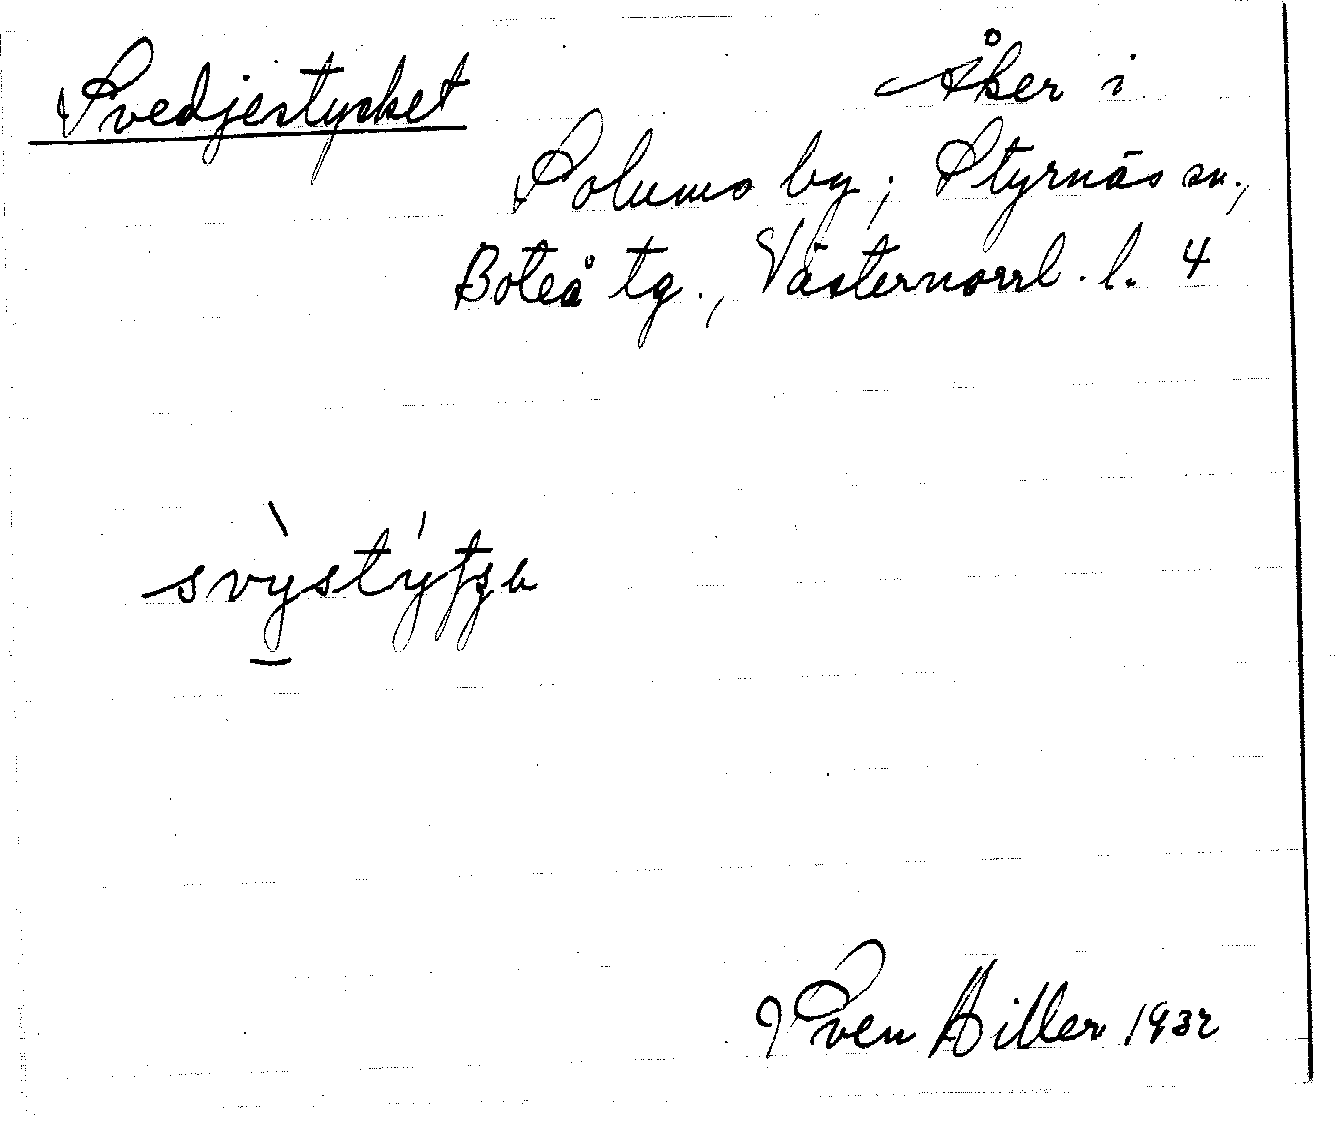 Svedjestycket
Åker i
Solumo by; Styrnäs sn.,
Boteå tg., Västernorrl. l. 4
Sven Hiller 1932